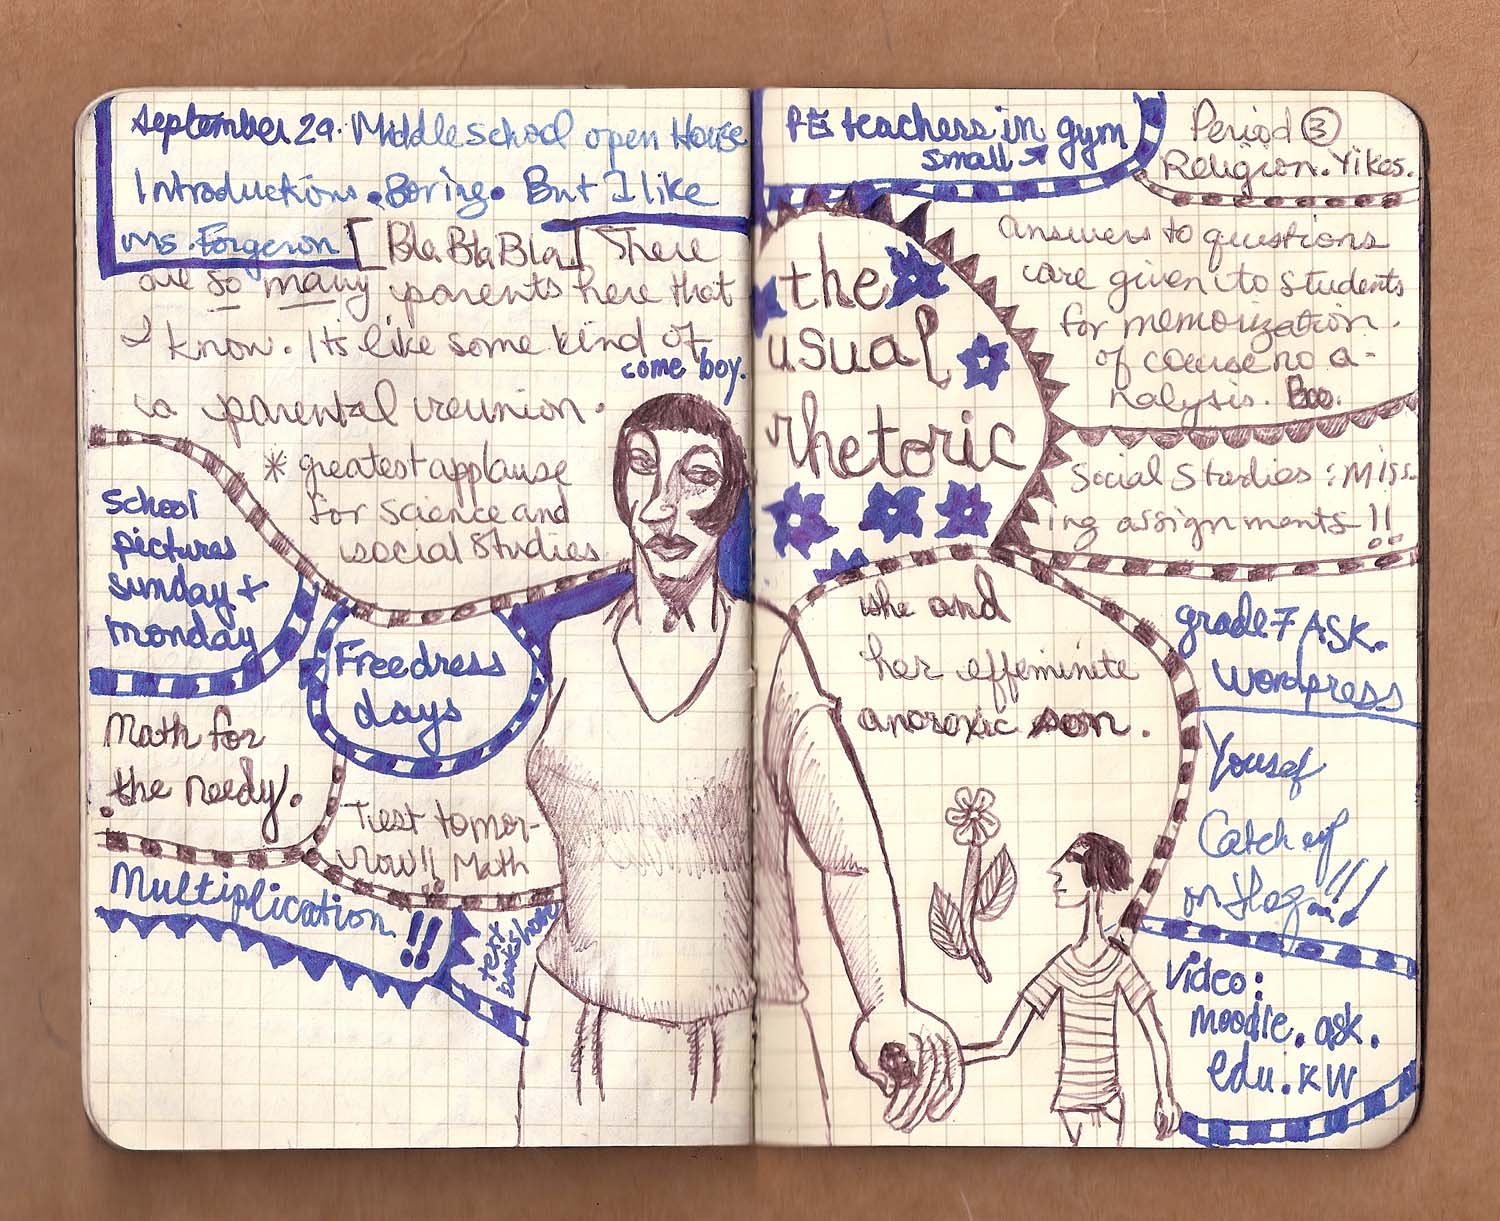 September 29. Middle school open House
Introductions. Boring. But I like
Ms. Forgeron [Bla Bla Bla] There
are so many parents here that
I know. Its like some kind of
come boy.
a parental reunion.
* greatest applause
for science and
social studies
School
pictures
sunday +
monday
Free dress
days
Math for
the needy.
Test tomor-
row!! Math
Multiplication!!
text
books
PE teachers in gym
small
the
usual
rhetoric
she and
her effeminite
anorexic son.
Period 3
Religion. Yikes.
Answers to questions
are given to students
for memorization.
of course no a-
nalysis. Boo.
Social Studies: Miss-
ing assignments!!
grade 7 ASK.
Wordpress
Yousef
Catch up
on
Video:
moodle.ask.
edu.KW